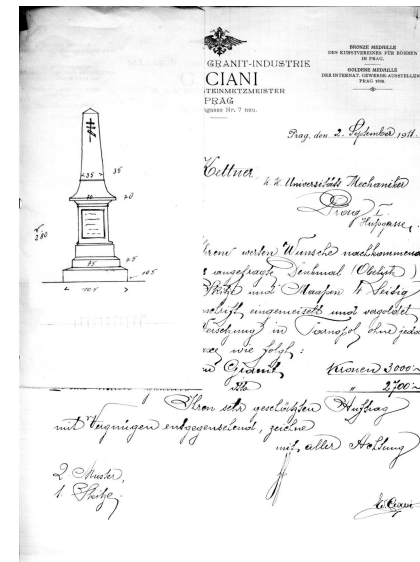 GRANIT-INDUSTRIE
CIANI
STEINMETZMEISTER
PRAG
gasse Nr. 7 neu.
BRONZE MEDAILLE
DES KUNSTVEREINES FÜR BÖHMEN
IN PRAG.
GOLDENE MEDAILLE
DER INTERNAT. GEWERBE-AUSSTELLUNG
PRAG
Prag, den 2. September 1911.
Kettner,
k. k. Universitäts Mechaniker
Prag I.
Ihrem werten Wunsche nachkommend
angefragte Denkmal (Obelisk)
Skitze und Maapen 4 Seitig
schrift eingemeiselt und vergoldet
Versetzung in Tarnopol, ohne jedoch
wie folgt:
Granit Kronen 3000
dto " 2700
Ihren sehr geschätzten Auftrag
mit Vergnügen entgegensehend, zeichne
mit aller Achtung
2 Muster,
1 Skitze.
E. Ciani
35 35
40
280
75
105